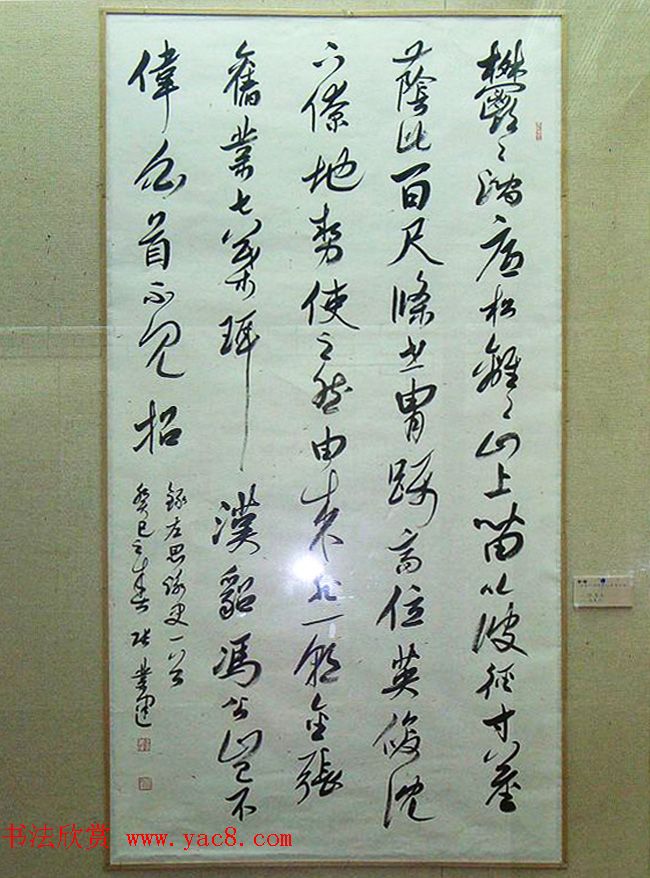 鬱〻澗底松離〻山上苗以彼徑寸莖
蔭此百尺條世胄躡高位英俊沈
下僚地勢使之然由來非一朝金張
舊業七葉珥漢貂馮公豈不
偉白首不見招
錄左思詠史一首
癸巳之春張業建
书法欣赏 www.yac8.com